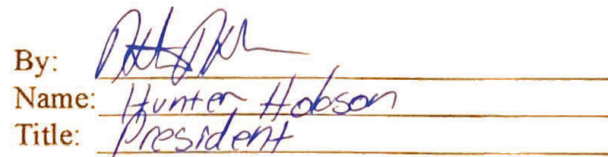 By:
Name: Hunter Hobson
Title: President